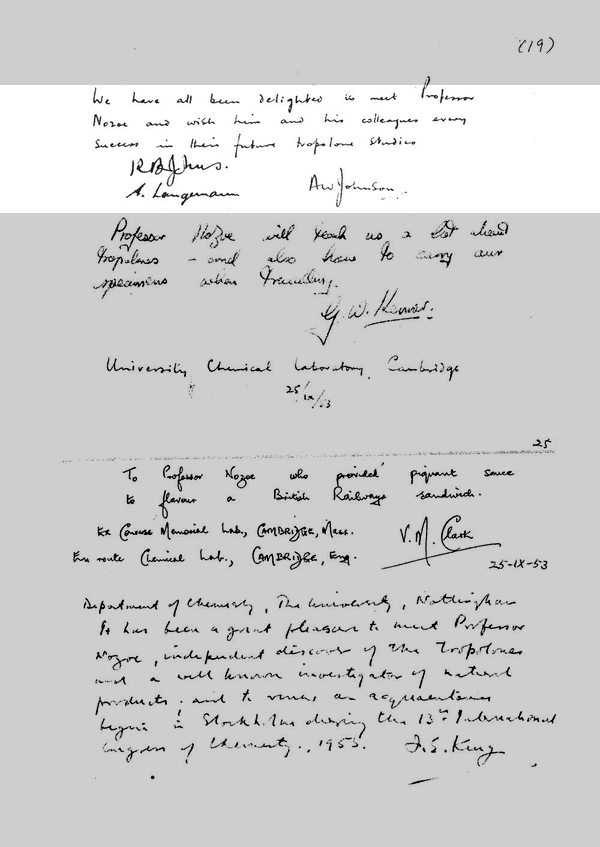 (19)
We have all been delighted to meet Professor
Nozoe and wish him and his colleagues every
success in their future tropolone studies
A. Langemann
AW Johnson
Professor Nozoe will teach us a lot about
tropolones – and also how to carry our
specimens when travelling.
G. W. Kenner.
University Chemical Laboratory, Cambridge
25/ix/53
25
To Professor Nozoe who provided piquant sauce
to flavour a British Railways sandwich.
Ex Converse Memorial Lab., CAMBRIDGE, Mass.
En route Chemical Lab., CAMBRIDGE, Eng.
V. M. Clark
25-IX-53
Department of Chemistry, The University, Nottingham
It has been a great pleasure to meet Professor
Nozoe, independent discover of the tropolones
and a well known investigator of natural
products; and to renew an acquaintance
begun in Stockholm during the 13th International
Congress of Chemistry., 1953.
F. E. King